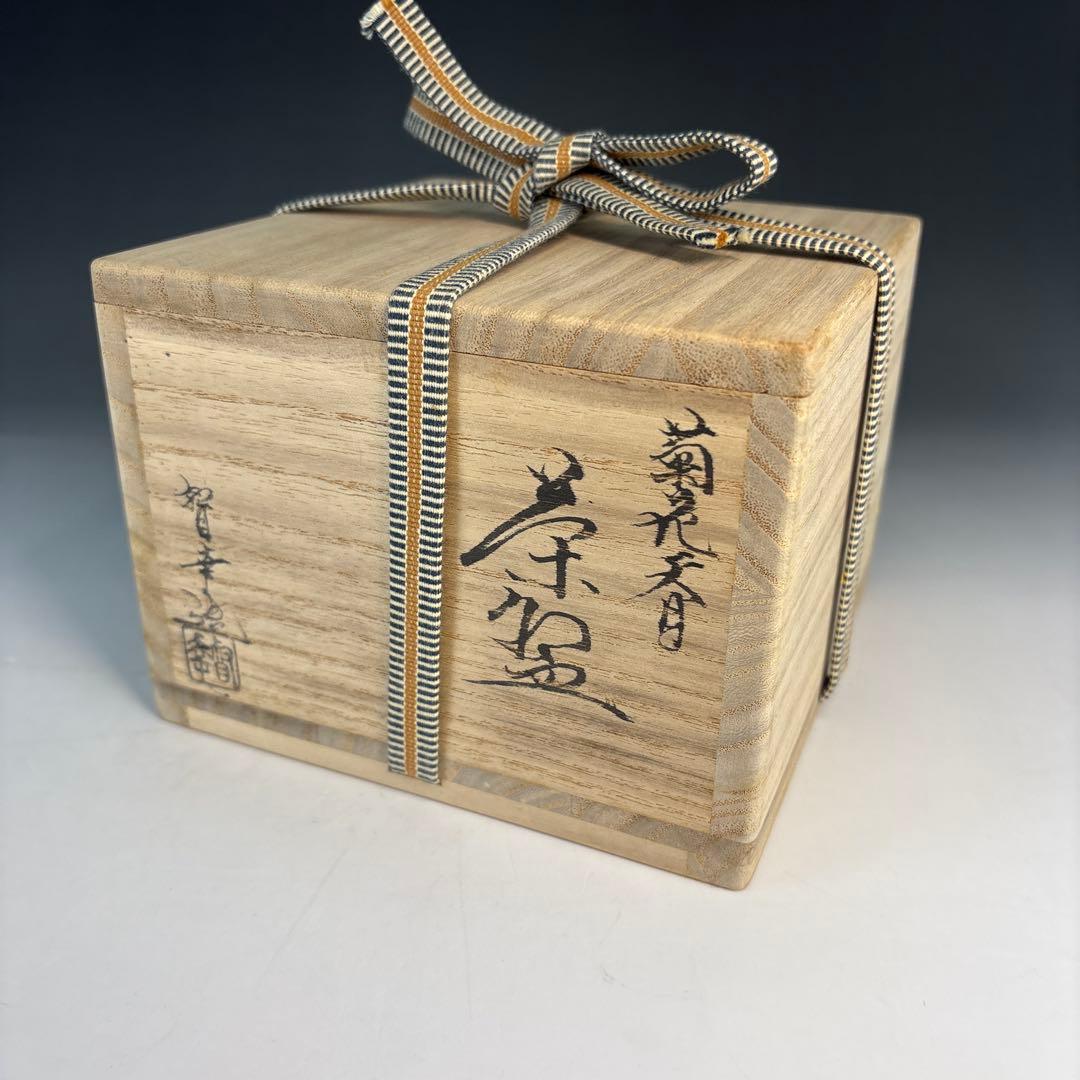 菊花天目
茶盌
賀幸造